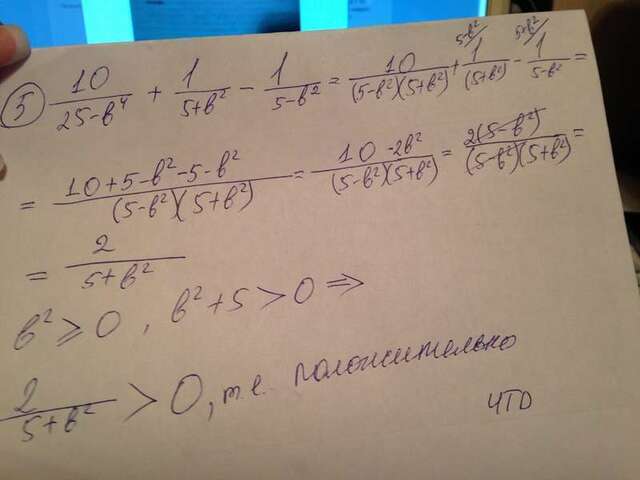 5) 10/(25-b⁴) + 1/(5+b²) - 1/(5-b²) = 10/((5-b²)(5+b²)) + 5-b²/ 1/(5+b²) - 5+b²/ 1/(5-b²) =
= (10+5-b²-5-b²)/((5-b²)(5+b²)) = (10-2b²)/((5-b²)(5+b²)) = 2(5-b²)/((5-b²)(5+b²)) =
= 2/(5+b²)
b² ⩾ 0, b²+5 > 0 ⇒
2/(5+b²) > 0, т.е. положительно
ЧТД